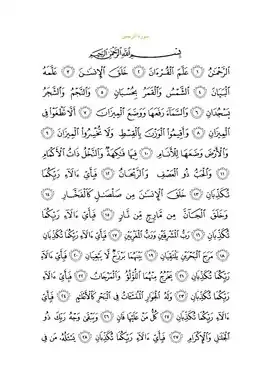 سورة الرحمن
بِسْمِ اللَّهِ الرَّحْمَٰنِ الرَّحِيمِ
الرَّحْمَٰنُ ١ عَلَّمَ الْقُرْءَانَ ٢ خَلَقَ الْإِنسَٰنَ ٣ عَلَّمَهُ
الْبَيَانَ ٤ الشَّمْسُ وَالْقَمَرُ بِحُسْبَانٍ ٥ وَالنَّجْمُ وَالشَّجَرُ
يَسْجُدَانِ ٦ وَالسَّمَآءَ رَفَعَهَا وَوَضَعَ الْمِيزَانَ ٧ أَلَّا تَطْغَوْا فِي
الْمِيزَانِ ٨ وَأَقِيمُوا الْوَزْنَ بِالْقِسْطِ وَلَا تُخْسِرُوا الْمِيزَانَ ٩
وَالْأَرْضَ وَضَعَهَا لِلْأَنَامِ ١٠ فِيهَا فَٰكِهَةٌ وَالنَّخْلُ ذَاتُ الْأَكْمَامِ
١١ وَالْحَبُّ ذُو الْعَصْفِ وَالرَّيْحَانُ ١٢ فَبِأَيِّ ءَالَآءِ رَبِّكُمَا
تُكَذِّبَانِ ١٣ خَلَقَ الْإِنسَٰنَ مِن صَلْصَٰلٍ كَالْفَخَّارِ ١٤
وَخَلَقَ الْجَآنَّ مِن مَّارِجٍ مِّن نَّارٍ ١٥ فَبِأَيِّ ءَالَآءِ رَبِّكُمَا
تُكَذِّبَانِ ١٦ رَبُّ الْمَشْرِقَيْنِ وَرَبُّ الْمَغْرِبَيْنِ ١٧ فَبِأَيِّ ءَالَآءِ رَبِّكُمَا تُكَذِّبَانِ
١٨ مَرَجَ الْبَحْرَيْنِ يَلْتَقِيَانِ ١٩ بَيْنَهُمَا بَرْزَخٌ لَّا يَبْغِيَانِ ٢٠ فَبِأَيِّ ءَالَآءِ
رَبِّكُمَا تُكَذِّبَانِ ٢١ يَخْرُجُ مِنْهُمَا اللُّؤْلُؤُ وَالْمَرْجَانُ ٢٢ فَبِأَيِّ ءَالَآءِ
رَبِّكُمَا تُكَذِّبَانِ ٢٣ وَلَهُ الْجَوَارِ الْمُنشَـَٔاتُ فِي الْبَحْرِ كَالْأَعْلَٰمِ ٢٤ فَبِأَيِّ ءَالَآءِ
رَبِّكُمَا تُكَذِّبَانِ ٢٥ كُلُّ مَنْ عَلَيْهَا فَانٍ ٢٦ وَيَبْقَىٰ وَجْهُ رَبِّكَ ذُو
الْجَلَٰلِ وَالْإِكْرَامِ ٢٧ فَبِأَيِّ ءَالَآءِ رَبِّكُمَا تُكَذِّبَانِ ٢٨ يَسْـَٔلُهُ مَن فِي